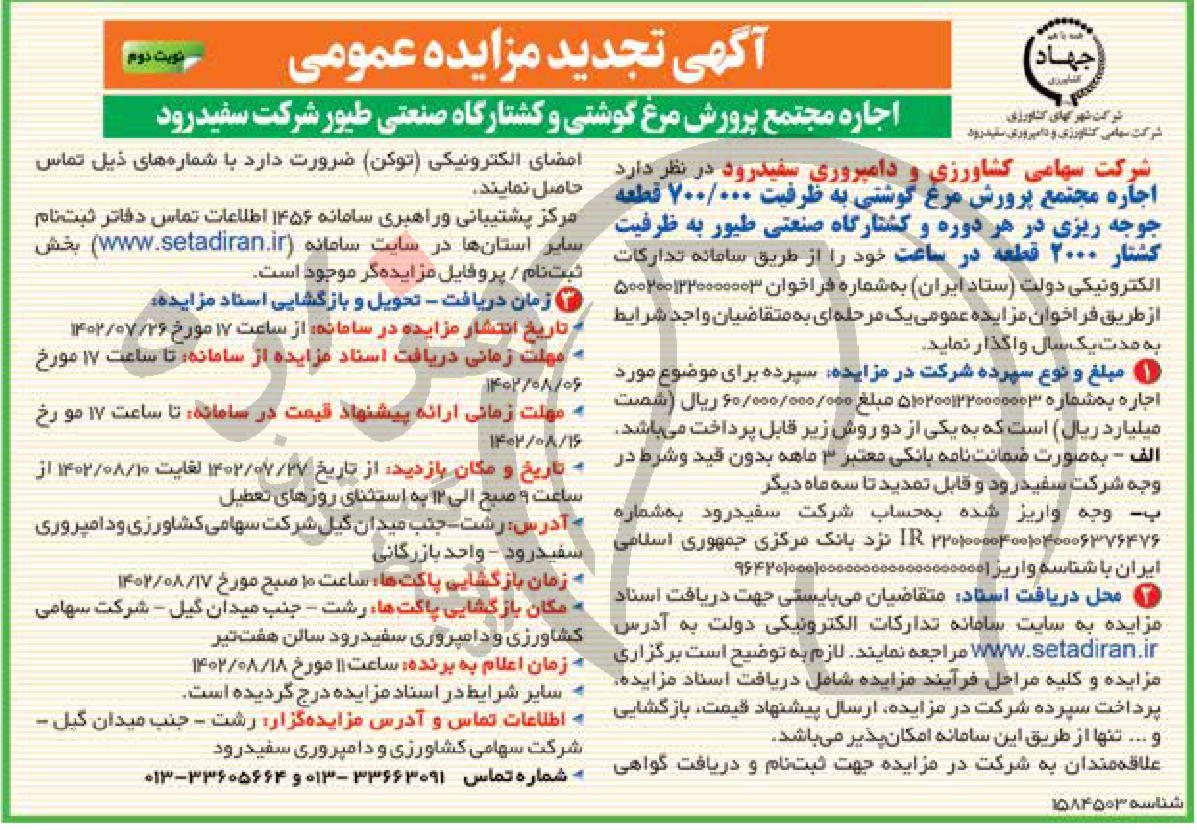 همه با هم
جهاد
کشاورزی
شرکت شهرکهای کشاورزی
شرکت سهامی کشاورزی و دامپروری سفیدرود
آگهی تجدید مزایده عمومی
نوبت دوم
اجاره مجتمع پرورش مرغ گوشتی و کشتارگاه صنعتی طیور شرکت سفیدرود
شرکت سهامی کشاورزی و دامپروری سفیدرود در نظر دارد
اجاره مجتمع پرورش مرغ گوشتی به ظرفیت ۷۰۰/۰۰۰ قطعه
جوجه ریزی در هر دوره و کشتارگاه صنعتی طیور به ظرفیت
کشتار ۲۰۰۰ قطعه در ساعت خود را از طریق سامانه تدارکات
الکترونیکی دولت (ستاد ایران) به‌شماره فراخوان ۵۰۰۲۰۰۱۲۲۰۰۰۰۰۰۳
از طریق فراخوان مزایده عمومی یک مرحله‌ای به متقاضیان واجد شرایط
به مدت یک‌سال واگذار نماید.
۱ مبلغ و نوع سپرده شرکت در مزایده: سپرده برای موضوع مورد
اجاره به‌شماره ۵۱۰۲۰۰۱۲۲۰۰۰۰۰۰۳ مبلغ ۶۰/۰۰۰/۰۰۰/۰۰۰ ریال (شصت
میلیارد ریال) است که به یکی از دو روش زیر قابل پرداخت می‌باشد.
الف - به‌صورت ضمانت‌نامه بانکی معتبر ۳ ماهه بدون قید وشرط در
وجه شرکت سفیدرود و قابل تمدید تا سه ماه دیگر
ب- وجه واریز شده به‌حساب شرکت سفیدرود به‌شماره
IR ۲۲۰۱۰۰۰۰۴۰۰۱۰۴۰۰۰۶۳۷۶۴۷۶ نزد بانک مرکزی جمهوری اسلامی
ایران با شناسه واریز
۲ محل دریافت اسناد: متقاضیان می‌بایستی جهت دریافت اسناد
مزایده به سایت سامانه تدارکات الکترونیکی دولت به آدرس
www.setadiran.ir مراجعه نمایند. لازم به توضیح است برگزاری
مزایده و کلیه مراحل فرآیند مزایده شامل دریافت اسناد مزایده،
پرداخت سپرده شرکت در مزایده، ارسال پیشنهاد قیمت، بازگشایی
و ... تنها از طریق این سامانه امکان‌پذیر می‌باشد.
علاقه‌مندان به شرکت در مزایده جهت ثبت‌نام و دریافت گواهی
امضای الکترونیکی (توکن) ضرورت دارد با شماره‌های ذیل تماس
حاصل نمایند.
مرکز پشتیبانی وراهبری سامانه ۱۴۵۶ اطلاعات تماس دفاتر ثبت‌نام
سایر استان‌ها در سایت سامانه (www.setadiran.ir) بخش
ثبت‌نام / پروفایل مزایده‌گر موجود است.
۳ زمان دریافت - تحویل و بازگشایی اسناد مزایده:
تاریخ انتشار مزایده در سامانه: از ساعت ۱۷ مورخ ۱۴۰۲/۰۷/۲۶
مهلت زمانی دریافت اسناد مزایده از سامانه: تا ساعت ۱۷ مورخ
۱۴۰۲/۰۸/۰۶
مهلت زمانی ارائه پیشنهاد قیمت در سامانه: تا ساعت ۱۷ مو رخ
۱۴۰۲/۰۸/۱۶
تاریخ و مکان بازدید: از تاریخ ۱۴۰۲/۰۷/۲۷ لغایت ۱۴۰۲/۰۸/۱۰ از
ساعت ۹ صبح الی ۱۲ به استثنای روزهای تعطیل
آدرس: رشت-جنب میدان گیل شرکت سهامی کشاورزی ودامپروری
سفیدرود - واحد بازرگانی
زمان بازگشایی پاکت‌ها: ساعت ۱۰ صبح مورخ ۱۴۰۲/۰۸/۱۷
مکان بازگشایی پاکت‌ها: رشت - جنب میدان گیل - شرکت سهامی
کشاورزی و دامپروری سفیدرود سالن هفت‌تیر
زمان اعلام به برنده: ساعت ۱۱ مورخ ۱۴۰۲/۰۸/۱۸
سایر شرایط در اسناد مزایده درج گردیده است.
اطلاعات تماس و آدرس مزایده‌گزار: رشت - جنب میدان گیل -
شرکت سهامی کشاورزی و دامپروری سفیدرود
شماره تماس ۳۳۶۶۳۰۹۱ -۰۱۳ و ۳۳۶۰۵۶۶۴-۰۱۳
شناسه ۱۵۸۴۵۰۳